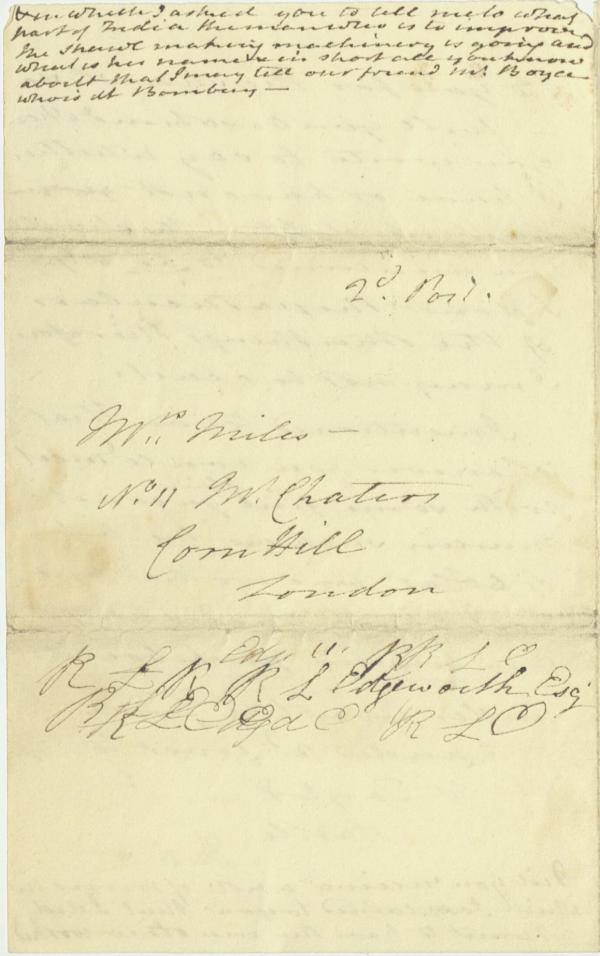 & in which I asked you to tell me to what
part of India the man who is to improve
the shawl making machinery is going and
what is his name & in short all you know
about it that I may tell our friend Mr. Boyce
who is at Bombay —
2d. Post.
Mrs. Miles —
No 11 Mr. Chaters
Corn Hill
London
Edg 11. RR L E
R L R R L Edgeworth Esq
R R L E Edgd E R L E